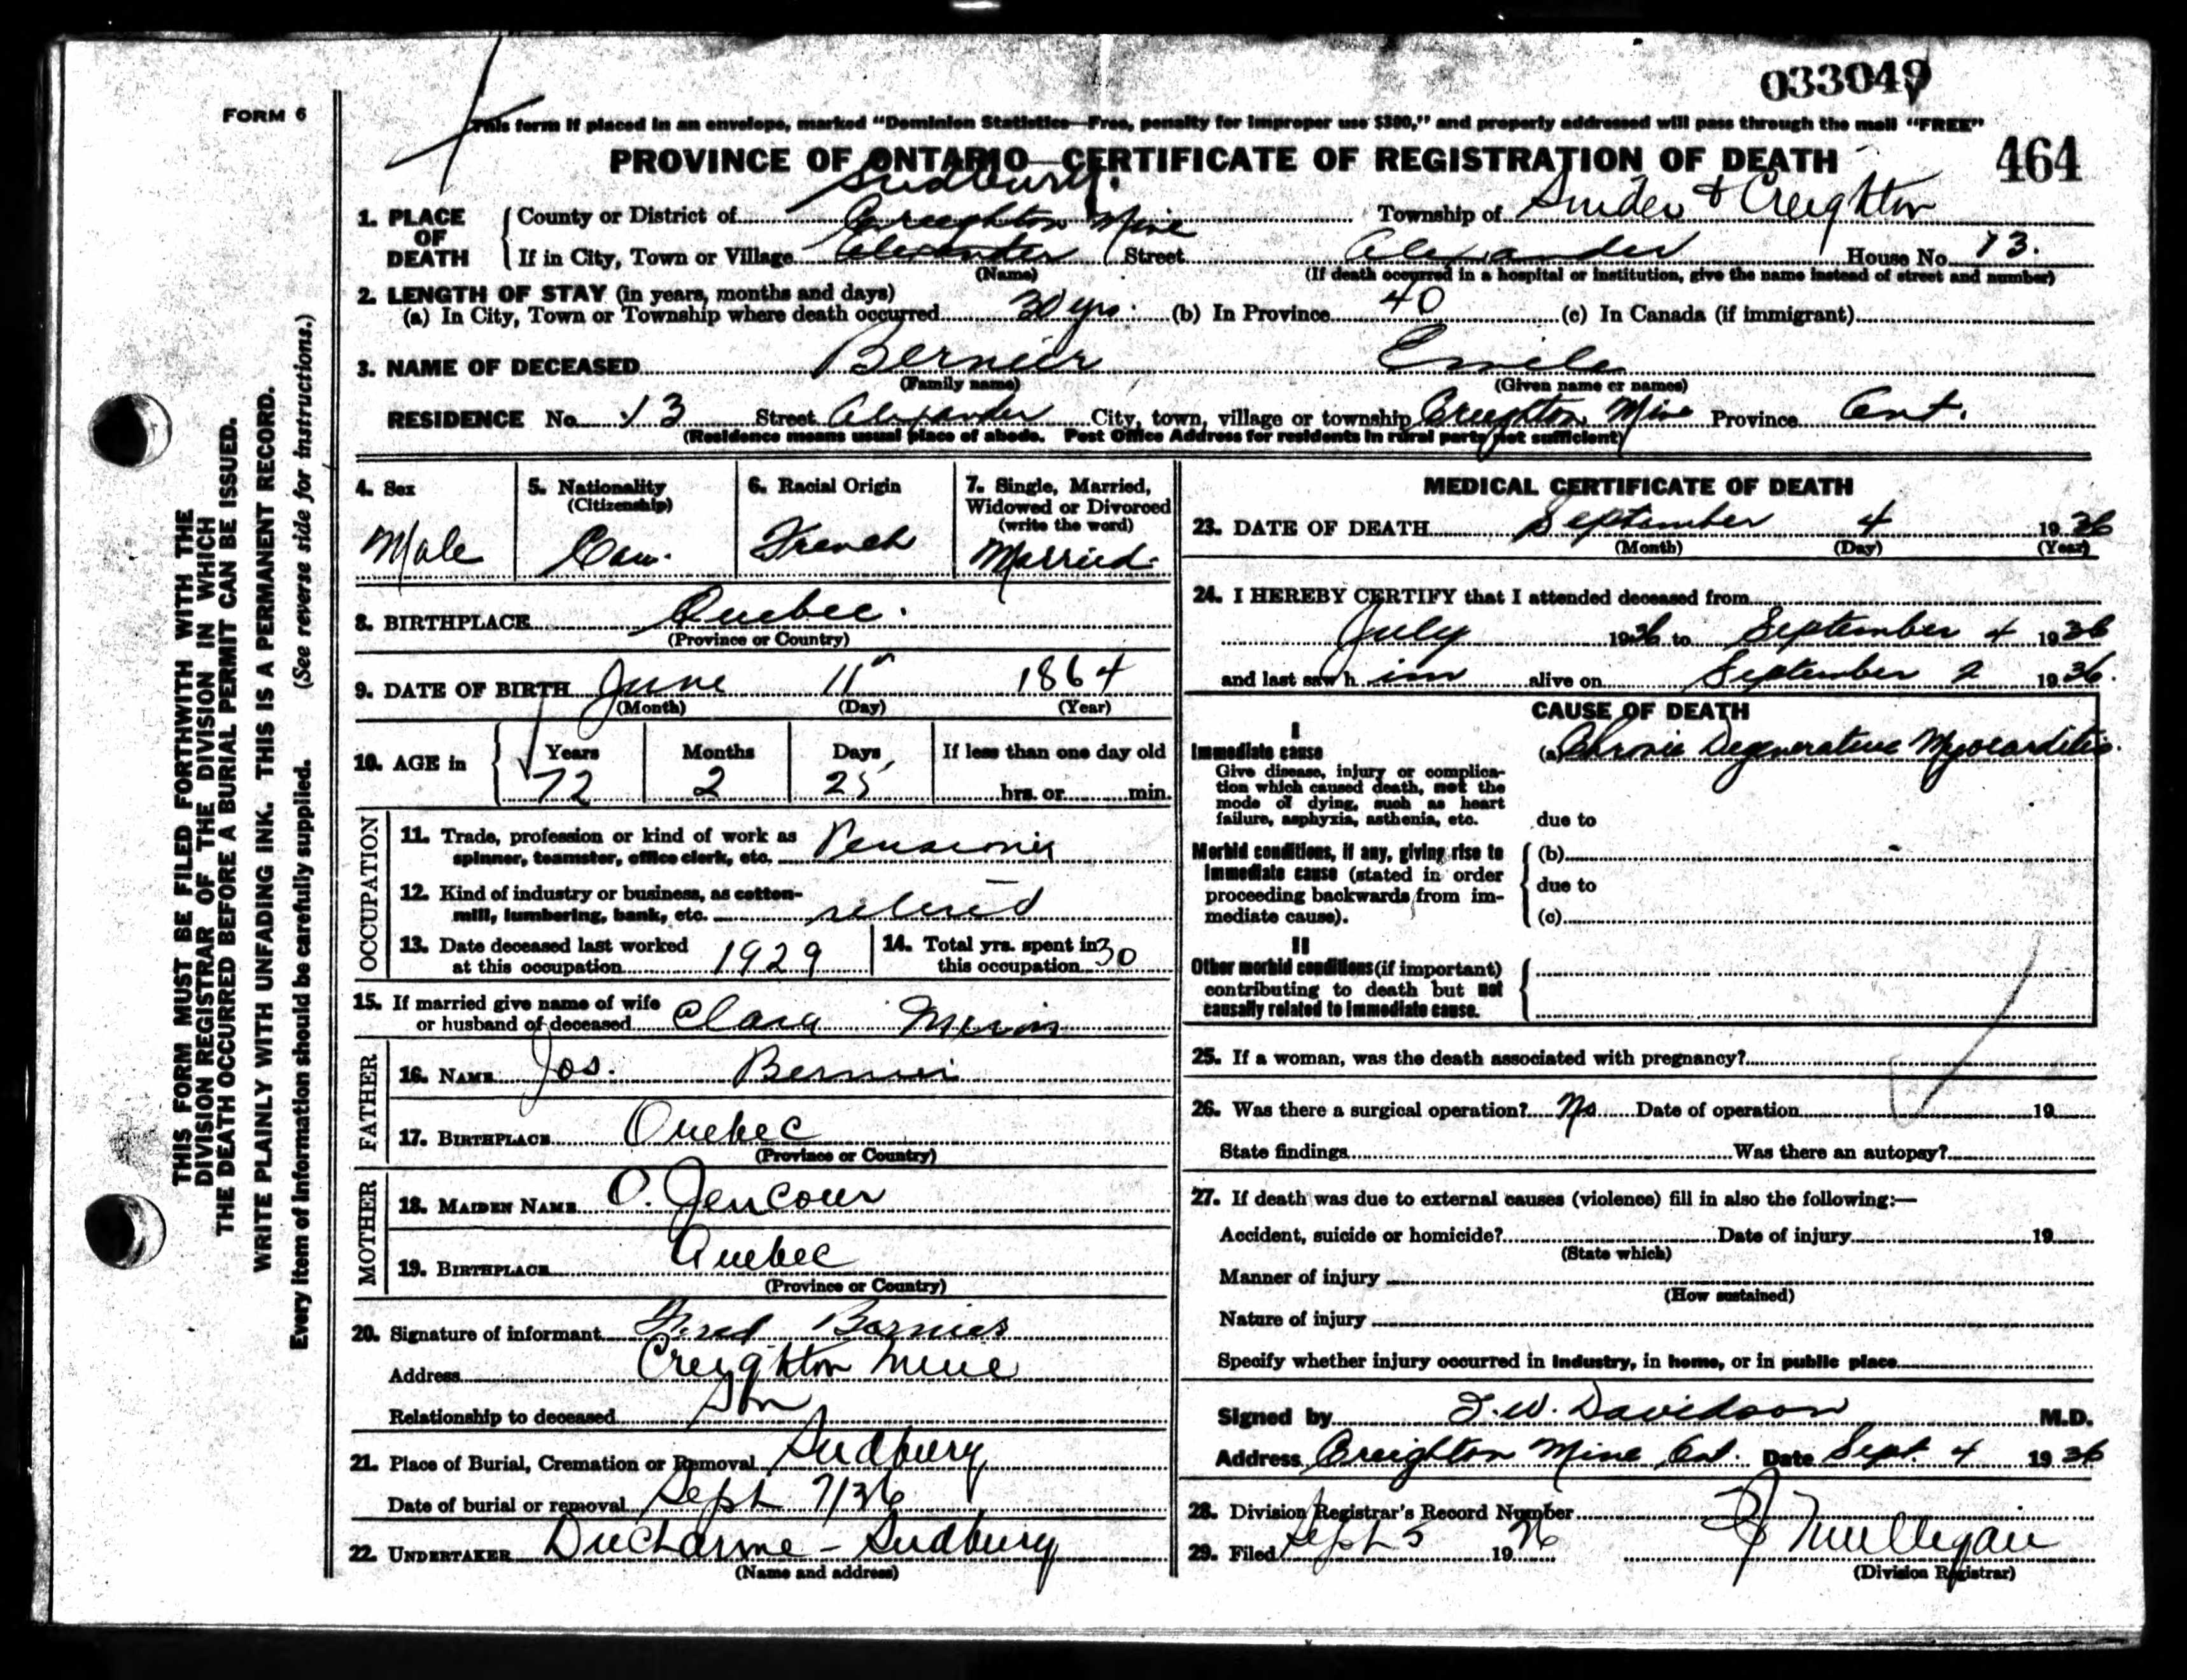 033049
FORM 6
This form if placed in an envelope, marked "Dominion Statistics—Free, penalty for improper use $300," and properly addressed will pass through the mail "FREE"
PROVINCE OF ONTARIO—CERTIFICATE OF REGISTRATION OF DEATH 464
Sudbury.
1. PLACE OF DEATH County or District of Creighton Mine Township of Snider & Creighton
If in City, Town or Village Alexander Street Alexander House No. 13.
(Name) (If death occurred in a hospital or institution, give the name instead of street and number)
2. LENGTH OF STAY (in years, months and days)
(a) In City, Town or Township where death occurred 30 yrs. (b) In Province 40 (c) In Canada (if immigrant)
3. NAME OF DECEASED Bernier Emile
(Family name) (Given name or names)
RESIDENCE No. 13 Street Alexander City, town, village or township Creighton Mine Province Ont.
(Residence means usual place of abode. Post Office Address for residents in rural parts not sufficient)
4. Sex 5. Nationality 6. Racial Origin 7. Single, Married,
(Citizenship) Widowed or Divorced
(write the word)
Male Can. French Married
8. BIRTHPLACE Quebec.
(Province or Country)
9. DATE OF BIRTH June 11 1864
(Month) (Day) (Year)
10. AGE in Years Months Days If less than one day old
72 2 25 hrs. or min.
OCCUPATION
11. Trade, profession or kind of work as
spinner, teamster, office clerk, etc. Pensioner
12. Kind of industry or business, as cotton-
mill, lumbering, bank, etc. retired
13. Date deceased last worked 14. Total yrs. spent in
at this occupation 1929 this occupation 30
15. If married give name of wife
or husband of deceased Clara
FATHER
16. NAME Jos. Bernier
17. BIRTHPLACE Quebec
(Province or Country)
MOTHER
18. MAIDEN NAME O. Jencour
19. BIRTHPLACE Quebec
(Province or Country)
20. Signature of informant Fred Bernier
Address Creighton Mine
Relationship to deceased Son
21. Place of Burial, Cremation or Removal Sudbury
Date of burial or removal Sept 7/36
22. UNDERTAKER Ducharme - Sudbury
(Name and address)
MEDICAL CERTIFICATE OF DEATH
23. DATE OF DEATH September 4 1936
(Month) (Day) (Year)
24. I HEREBY CERTIFY that I attended deceased from
July 1936 to September 4 1936
and last saw h im alive on September 2 1936.
CAUSE OF DEATH
I
Immediate cause (a) Chronic Degenerative Myocarditis.
Give disease, injury or complica-
tion which caused death, not the
mode of dying, such as heart
failure, asphyxia, asthenia, etc. due to
Morbid conditions, if any, giving rise to (b)
immediate cause (stated in order
proceeding backwards from im- due to
mediate cause). (c)
II
Other morbid conditions (if important)
contributing to death but not
causally related to immediate cause.
25. If a woman, was the death associated with pregnancy?
26. Was there a surgical operation? No Date of operation 19
State findings Was there an autopsy?
27. If death was due to external causes (violence) fill in also the following:—
Accident, suicide or homicide? Date of injury 19
(State which)
Manner of injury
(How sustained)
Nature of injury
Specify whether injury occurred in industry, in home, or in public place
Signed by J. W. Davidson M.D.
Address Creighton Mine Ont. Date Sept. 4 1936
28. Division Registrar's Record Number
29. Filed Sept 5 1936 Mulligan
(Division Registrar)
THIS FORM MUST BE FILED FORTHWITH WITH THE
DIVISION REGISTRAR OF THE DIVISION IN WHICH
THE DEATH OCCURRED BEFORE A BURIAL PERMIT CAN BE ISSUED.
WRITE PLAINLY WITH UNFADING INK. THIS IS A PERMANENT RECORD.
Every item of information should be carefully supplied. (See reverse side for instructions.)